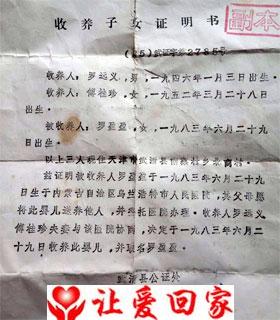 收养子女证明书
副本
(85)武证字第2785号
收养人：罗远义，男，一九四六年一月三日出生。
收养人：傅桂珍，女，一九五二年三月二十八日
出生。
被收养人：罗盈盈，女，一九八三年六月二十九
日出生。
以上三人现住天津市武清县
兹证明被收养人罗盈盈于一九八三年六月二十九
日生于内蒙古自治区乌兰浩特市人民医院，其父母愿
将此婴儿送养他人，并委托该院协助办理。收养人罗远义
傅桂珍夫妻与该医院协商，决定于一九八三年六月二十
九日收养此婴儿，并取名罗盈盈。
武清县公证处
让爱回家